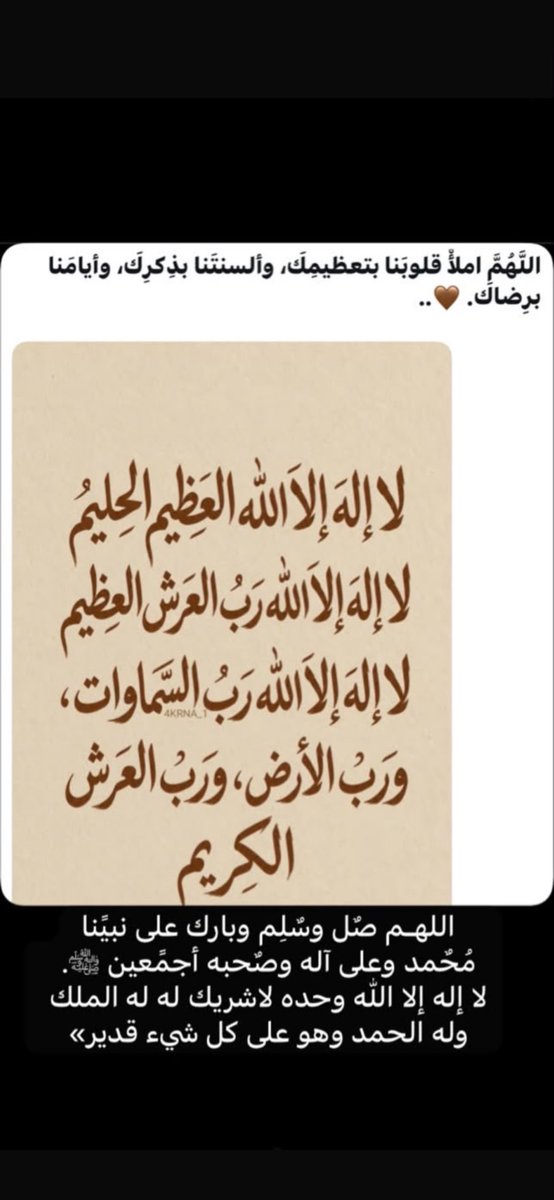 اللَّهُمَّ املأْ قلوبَنا بتعظيمِكَ، وألسنتَنا بذِكرِكَ، وأيامَنا
برِضاكَ. 🤎..
لا إلهَ إلاَ الله العَظِيم الحِليمُ
لا إلهَ إلاَ الله رَبُ العَرَش العظِيم
لا إلهَ إلاَ الله رَبُ السَّماوات،
4KRNA_1
ورَبْ الأرض، ورَبْ العَرَش
الكِريم
اللهـم صٌل وسٌلِم وبارك على نبيًنا
مُحٌمد وعلى آله وصٌحبه أجمًعين ﷺ.
لا إله إلا الله وحده لاشريك له له الملك
وله الحمد وهو على كل شيء قدير»